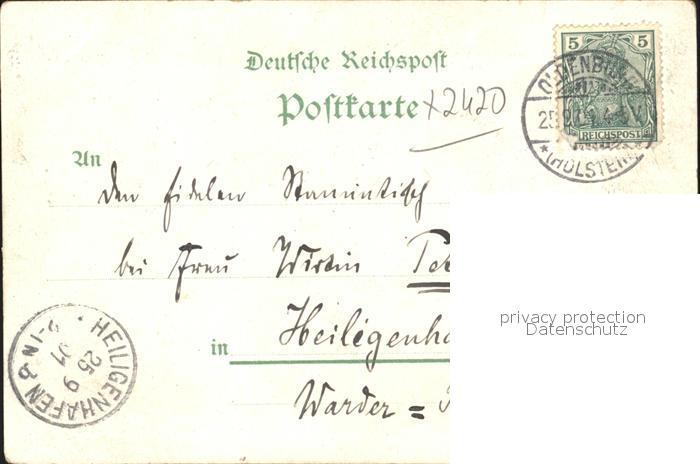 Deutsche Reichspost
Postkarte x2420
5 5
REICHSPOST
OLDENBURG
(HOLSTEIN)
An
den fidelen Stammtisch
bei Frau Wirtin
in Heiligenha
Warder =
HEILIGENHAFEN
25 9
01
privacy protection
Datenschutz